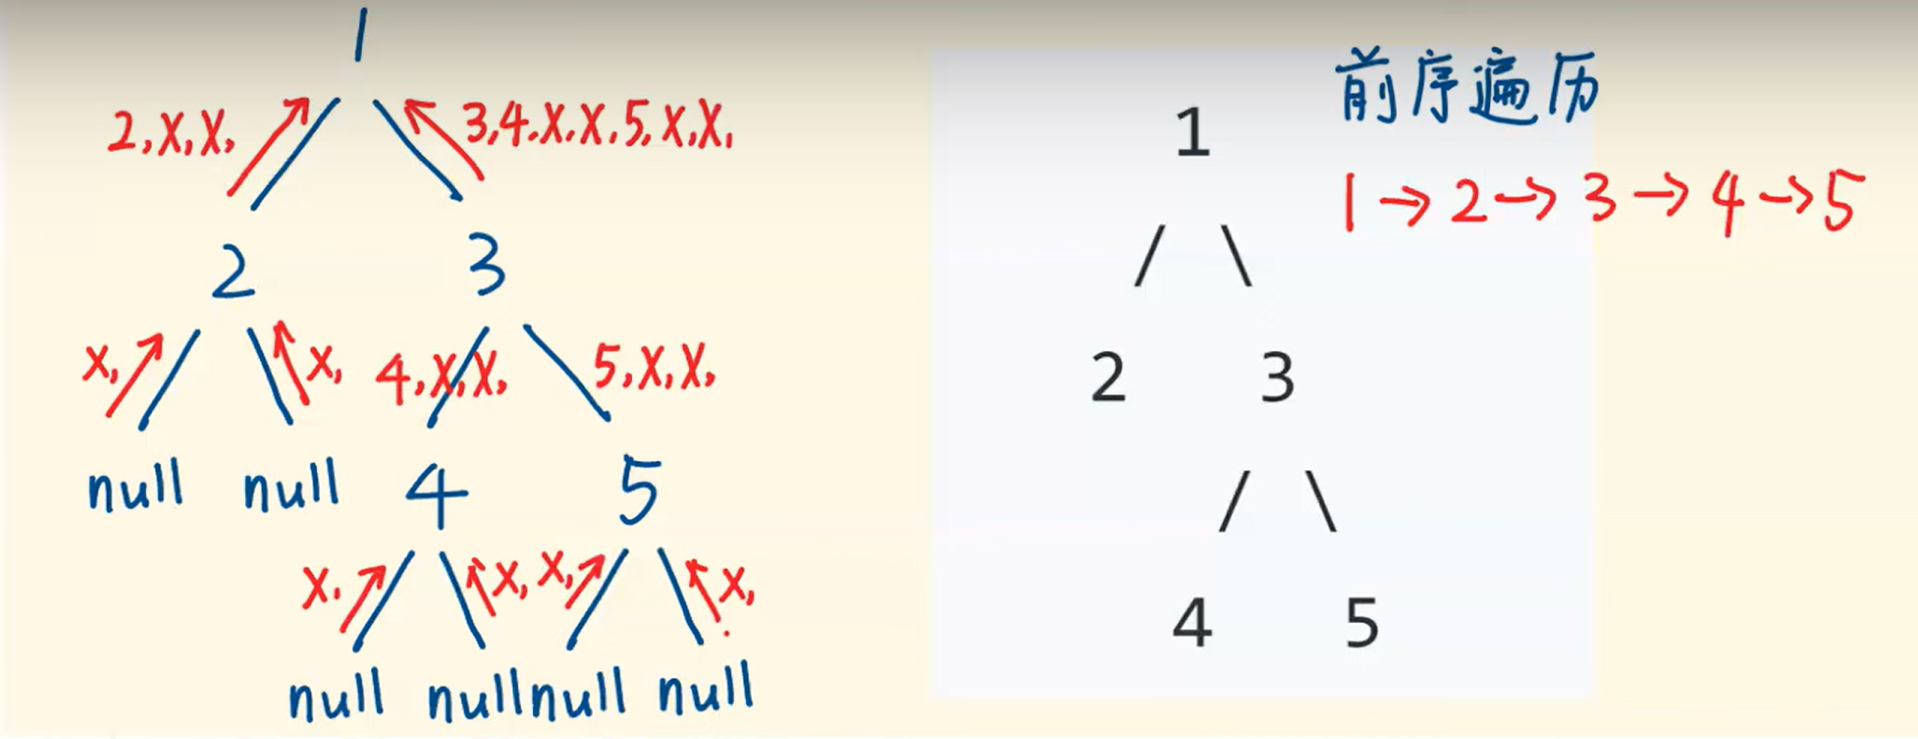 1
2,X,X,
3,4.X.X.5,X,X,
2
3
X,
X,
4,X,X,
5,X,X,
null
null
4
5
X,
X,
X,
X,
null
null
null
null
1
/ \
2 3
/ \
4 5
前序遍历
1→2→3→4→5